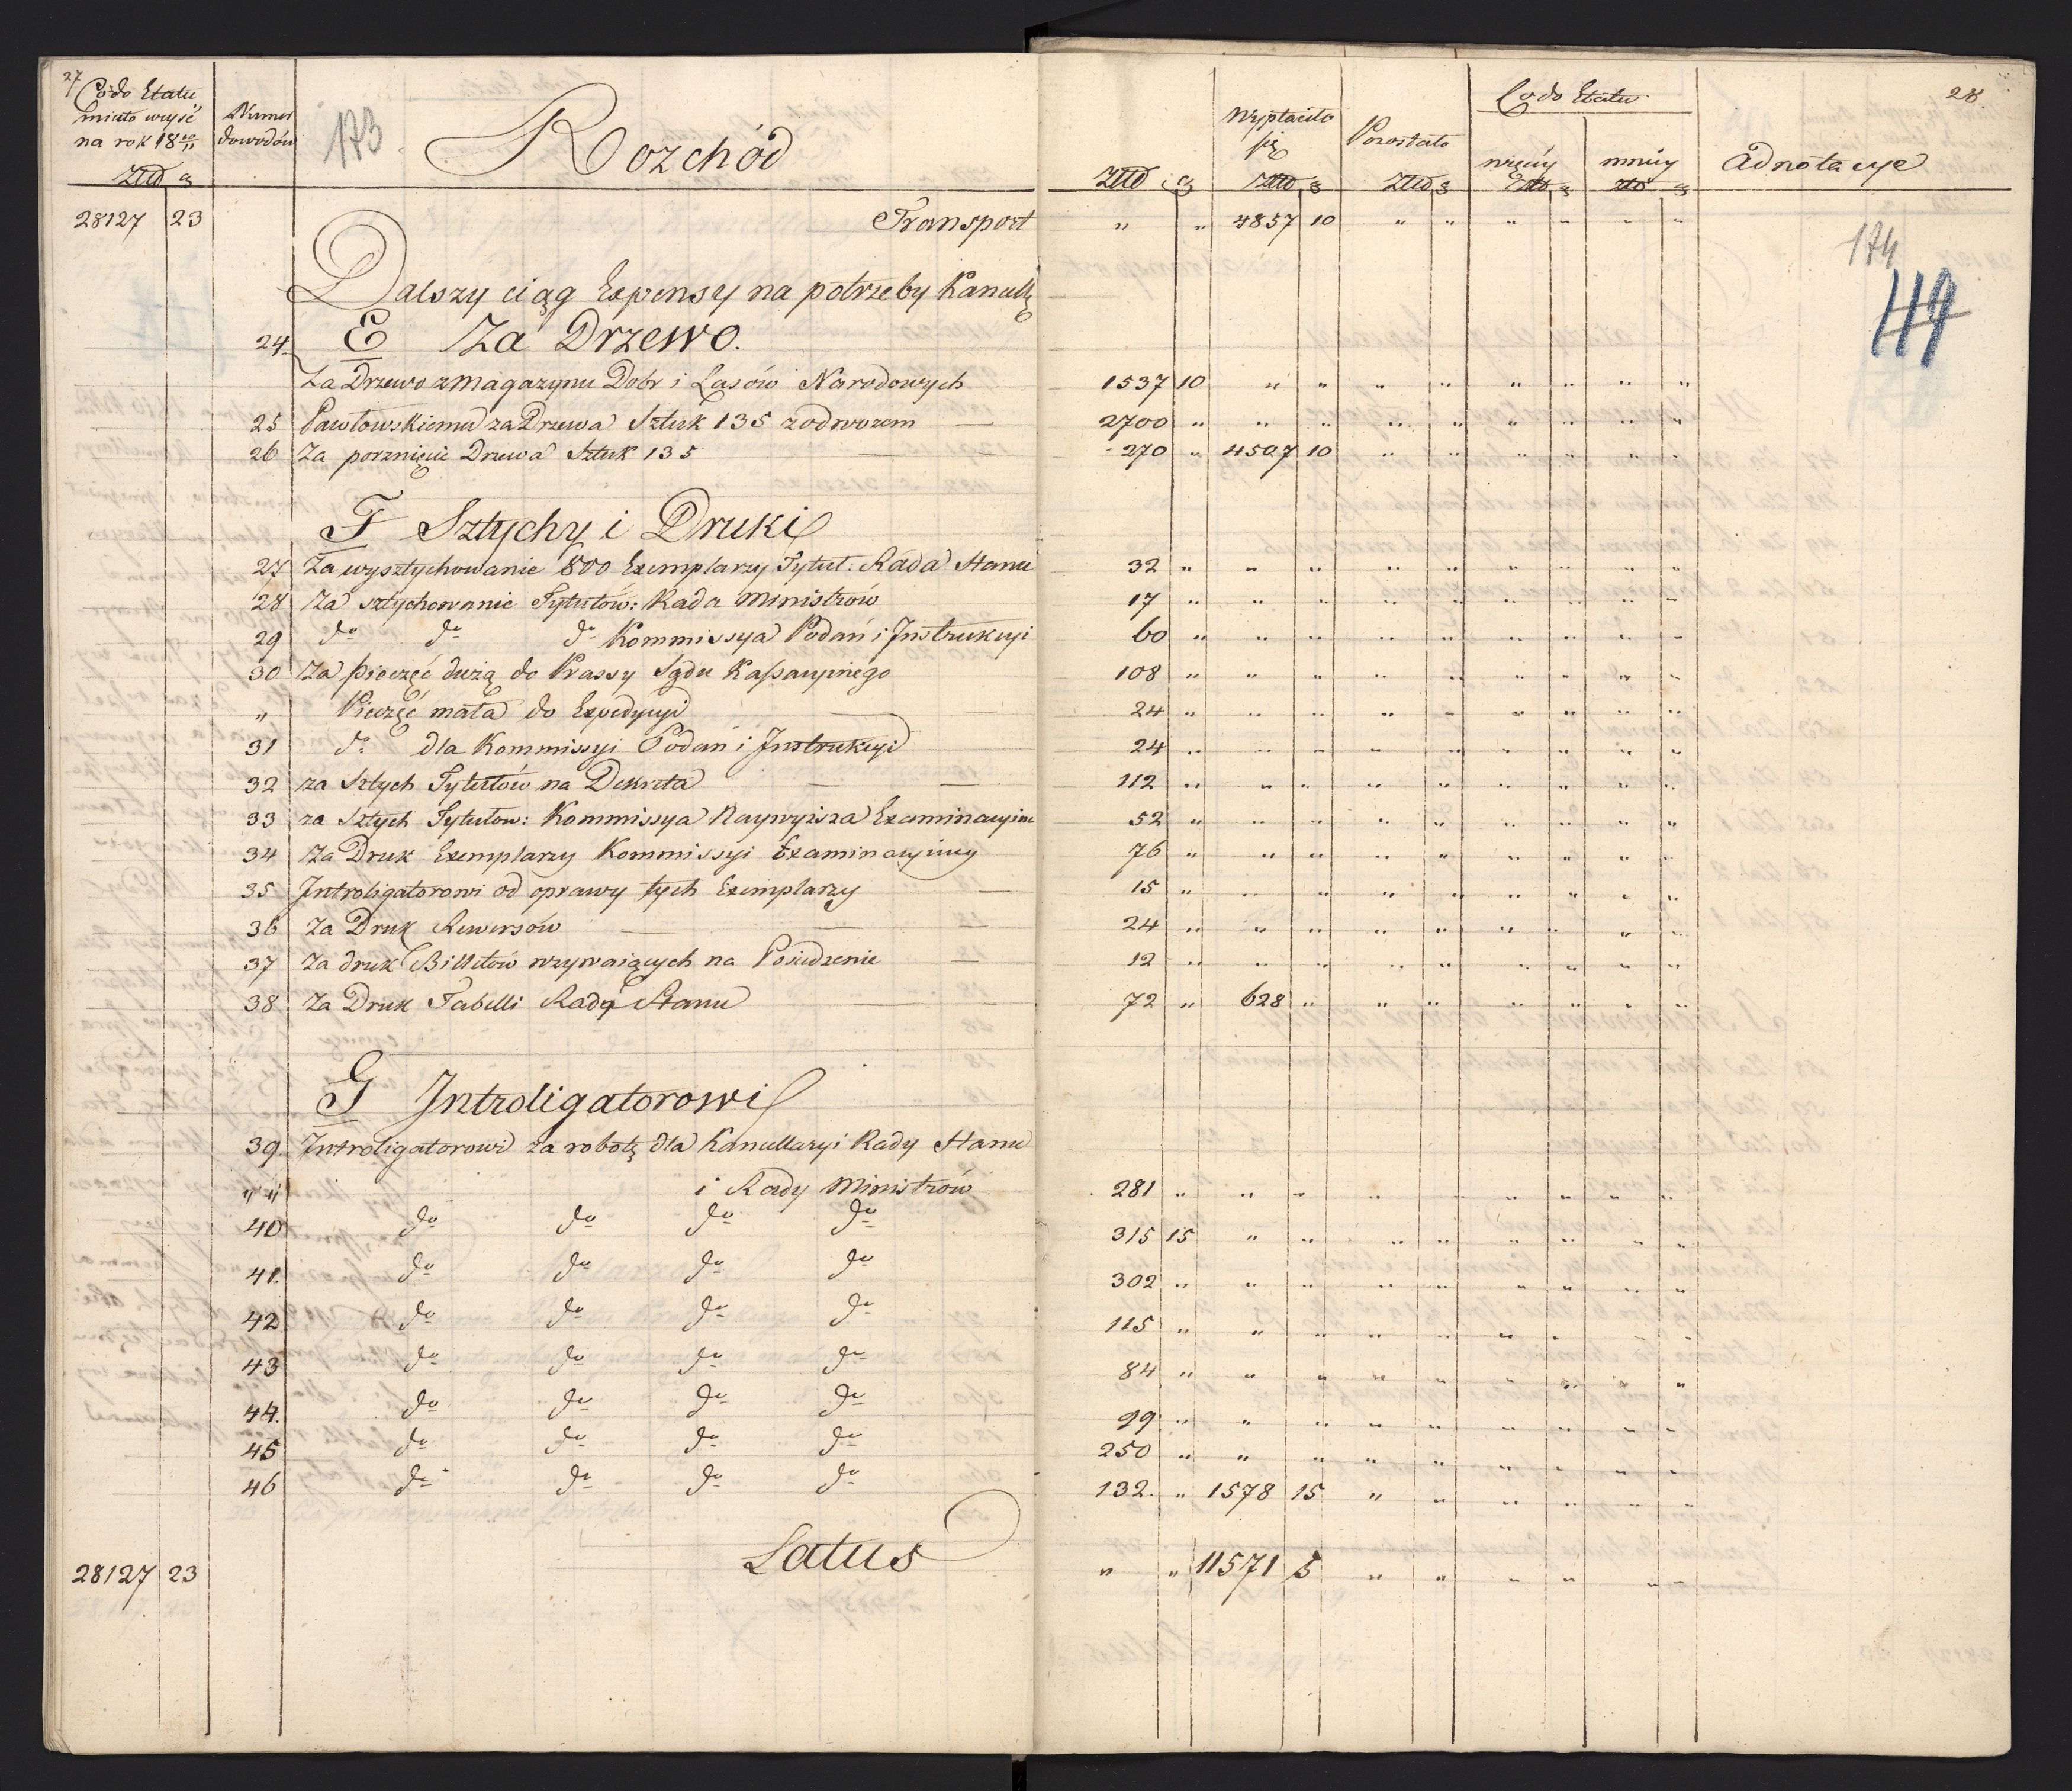 27 Co do Etatu Numer 173 Rozchód Wypłaciło Pozostało Co do Etatu 28
miało wyjść dowodów się więcy mniey Adnotacye
na rok 18 10/11
Złł g Złł g Złł g Złł g Złł g Złł g
28127 23 Transport " " 4857 10 " " " " " "
174
49
Dalszy ciąg Expensy na potrzeby Kancell
24. E Za Drzewo.
Za Drzewo z Magazynu Dobr i Lasów Narodowych 1537 10 " " " " " " " "
25 Pawłowskiemu za Drzewa Sztuk 135 z odwozem — 2700 " " " " " " " " "
26 Za porznięcie Drzewa Sztuk 135 — — 270 " 4507 10 " " " " " "
F Sztychy i Druki
27 Za wysztychowanie 800 Exemplarzy Tytuł: Rada Stanu 32 " " " " " " " " "
28 Za sztychowanie Tytułów: Rada Ministrów 17 " " " " " " " " "
29 do do do Kommissya Podań i Instrukcyi 60 " " " " " " " " "
30 Za pieczęć dużą do Prassy Sądu Kassacyinego 108 " " " " " " " " "
" Pieczęć mała do Expedycyi — 24 " " " " " " " " "
31 do dla Kommissyi Podań i Instrukcyi 24 " " " " " " " " "
32 za Sztych Tytułów na Dekreta — — 112 " " " " " " " " "
33 za Sztych Tytułów: Kommissya Naywyższa Examinacyina 52 " " " " " " " " "
34 Za Druk Exemplarzy Kommissyi Examinacyiney 76 " " " " " " " " "
35 Introligatorowi od oprawy tych Exemplarzy — 15 " " " " " " " " "
36 Za Druk Rewersów — — — 24 " " " " " " " " "
37 Za druk Billetów wzywaiących na Posiedzenie — 12 " " " " " " " " "
38 Za Druk Tabelli Rady Stanu — — 72 " 628 " " " " " " "
G Introligatorowi
39. Introligatorowi za robotę dla Kancellaryi Rady Stanu
" " i Rady Ministrów 281 " " " " " " " " "
40 do do do do 315 15 " " " " " " " "
41. do do do do 302 " " " " " " " " "
42 do do do do 115 " " " " " " " " "
43 do do do do 84 " " " " " " " " "
44. do do do do 99 " " " " " " " " "
45 do do do do 250 " " " " " " " " "
46 do do do do 132. " 1578 15 " " " " " "
28127 23 Latus " " 11571 5 " " " " " "